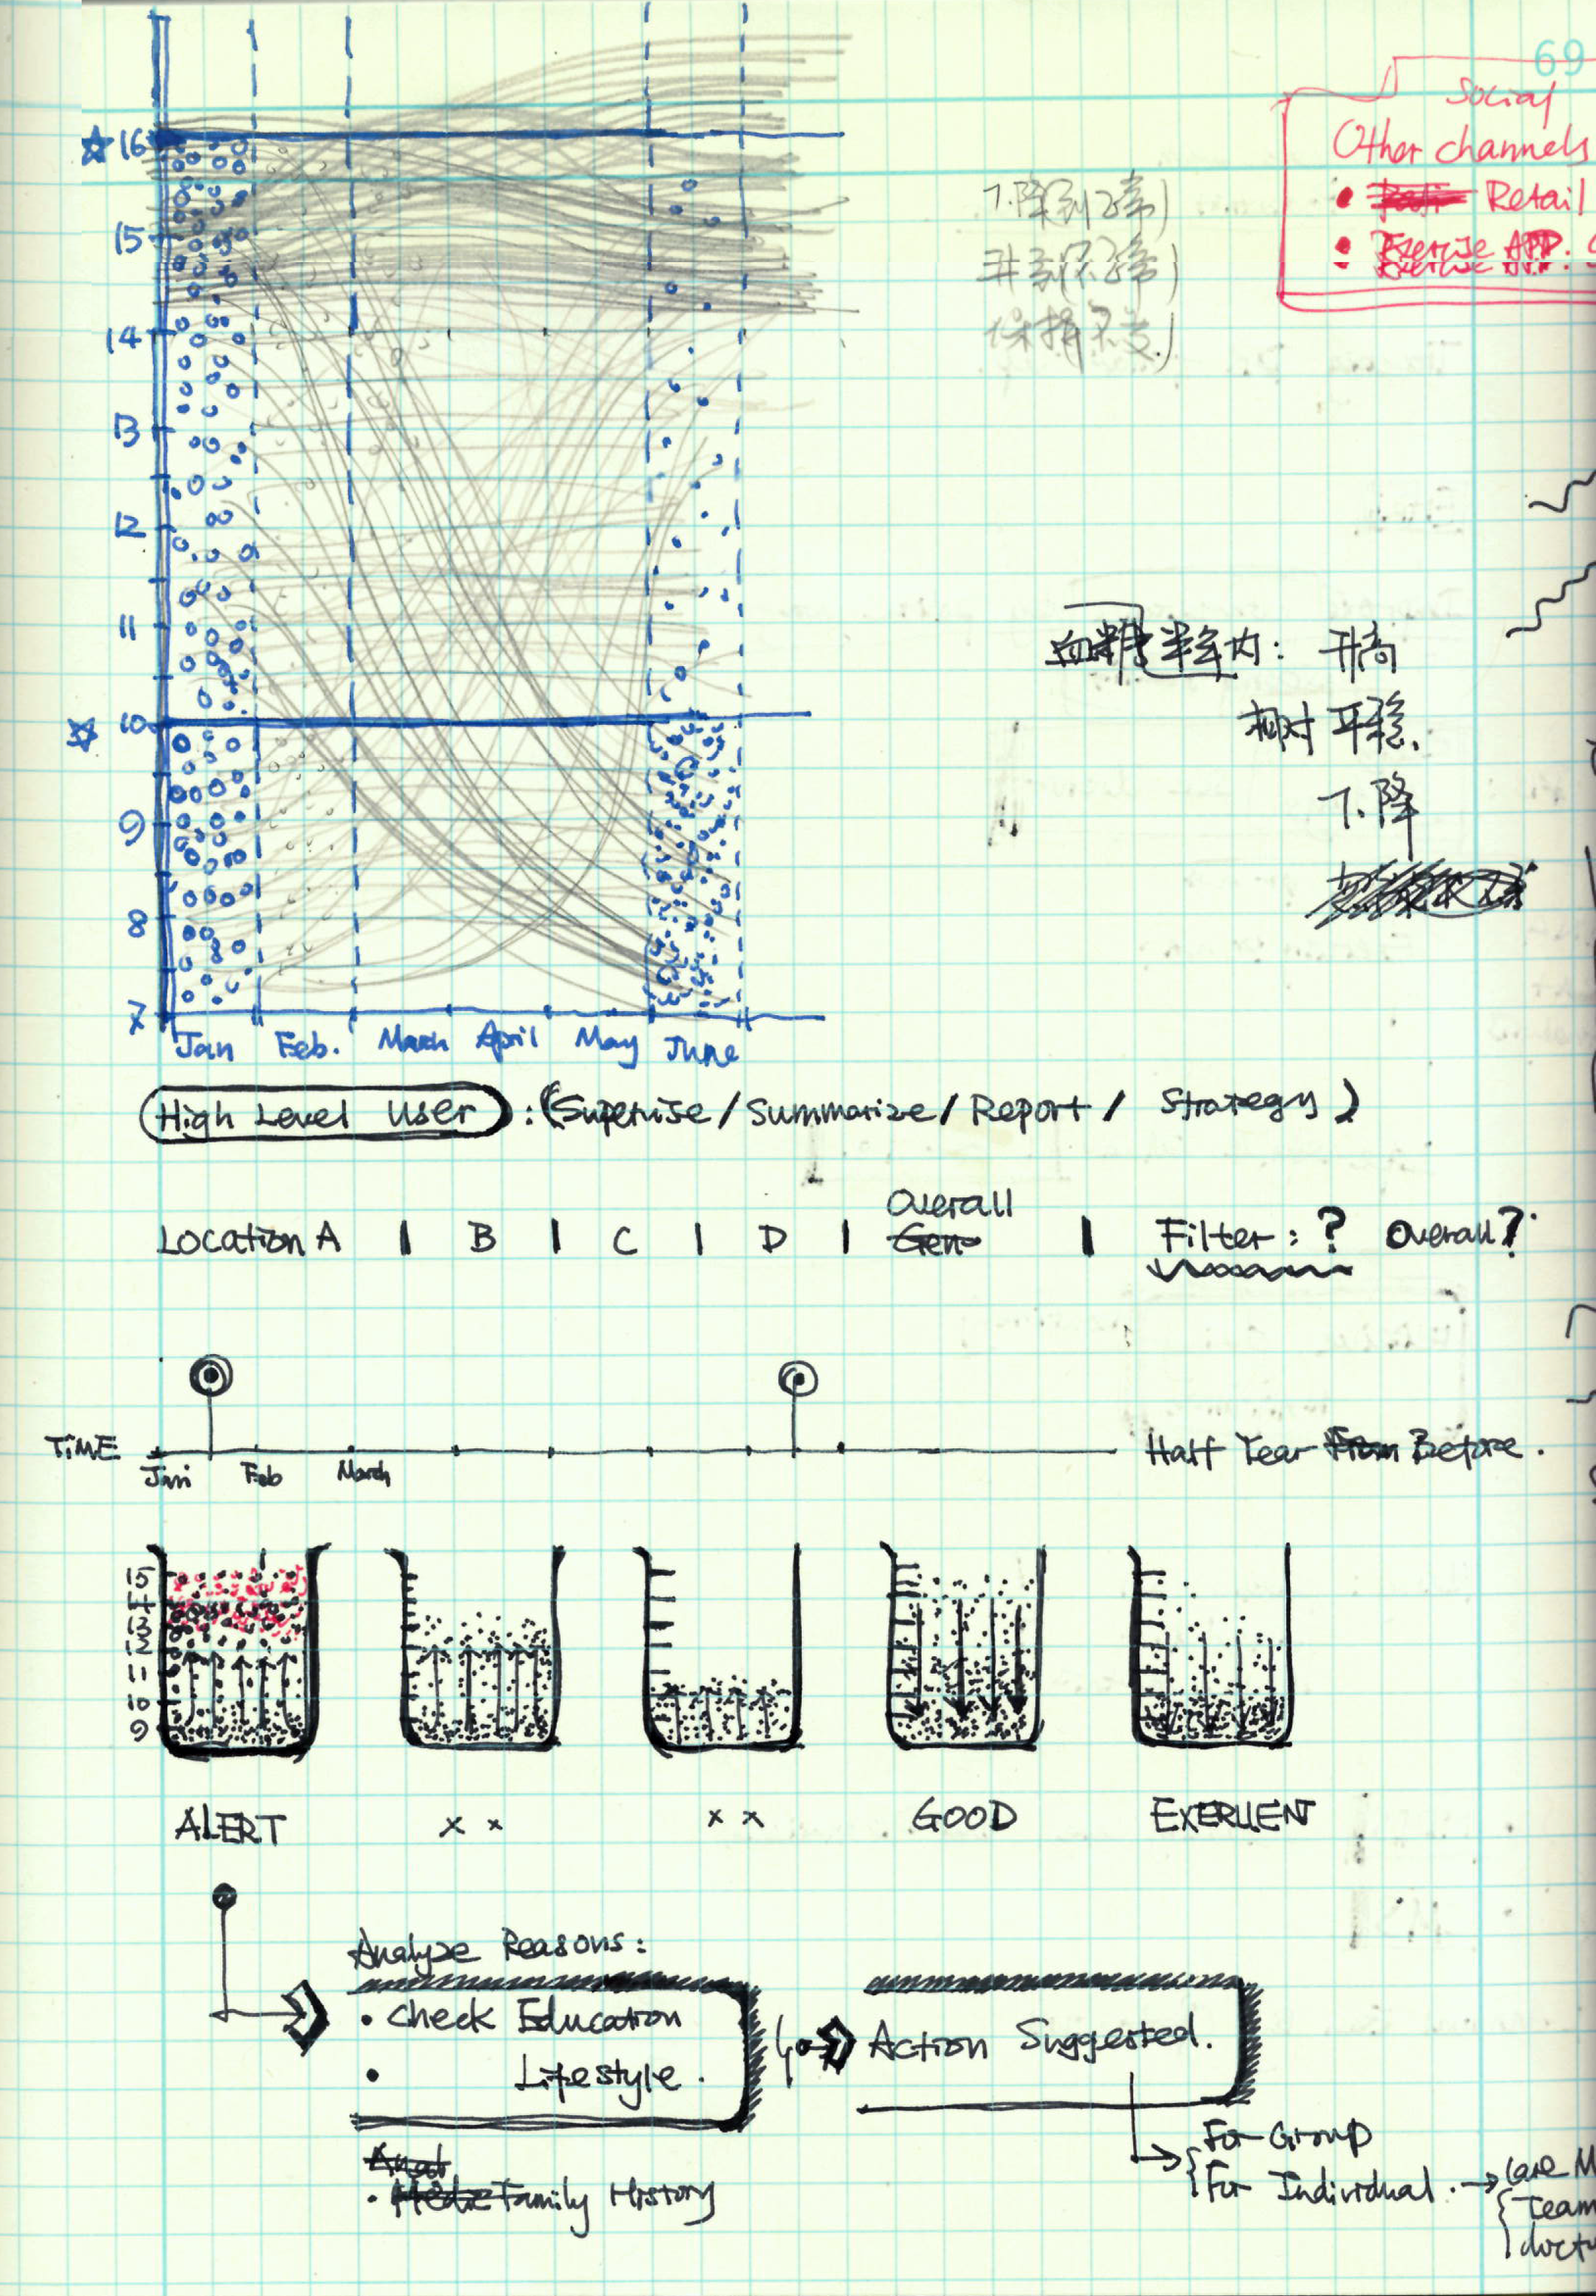 69
Social
Other channels
• Retail
• Exercise APP.
16
15
14
13
12
11
10
9
8
7
下降到(正常)
升高(不正常)
保持不变)
血糖半年内: 升高
相对平稳.
下降
Jan Feb. March April May June
High Level User : (Supervise / Summarize / Report / Strategy)
Location A | B | C | D | Overall | Filter : ? Overall ?
TIME
Jan Feb March
Half Year Before .
15
14
13
12
11
10
9
ALERT x x x x GOOD EXERLLENT
Analyze Reasons :
• Check Education
• Lifestyle .
• Family History
Action Suggested.
For Group
For Individual .
Team